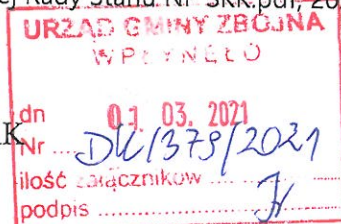 ej Rady Stanu Nr SKK.pdf, 20
URZĄD GMINY ZBÓJNA
WPŁYNĘŁO
dn 03. 2021
K
Nr .... DK/379/2021
ilość załączników ....
podpis ....